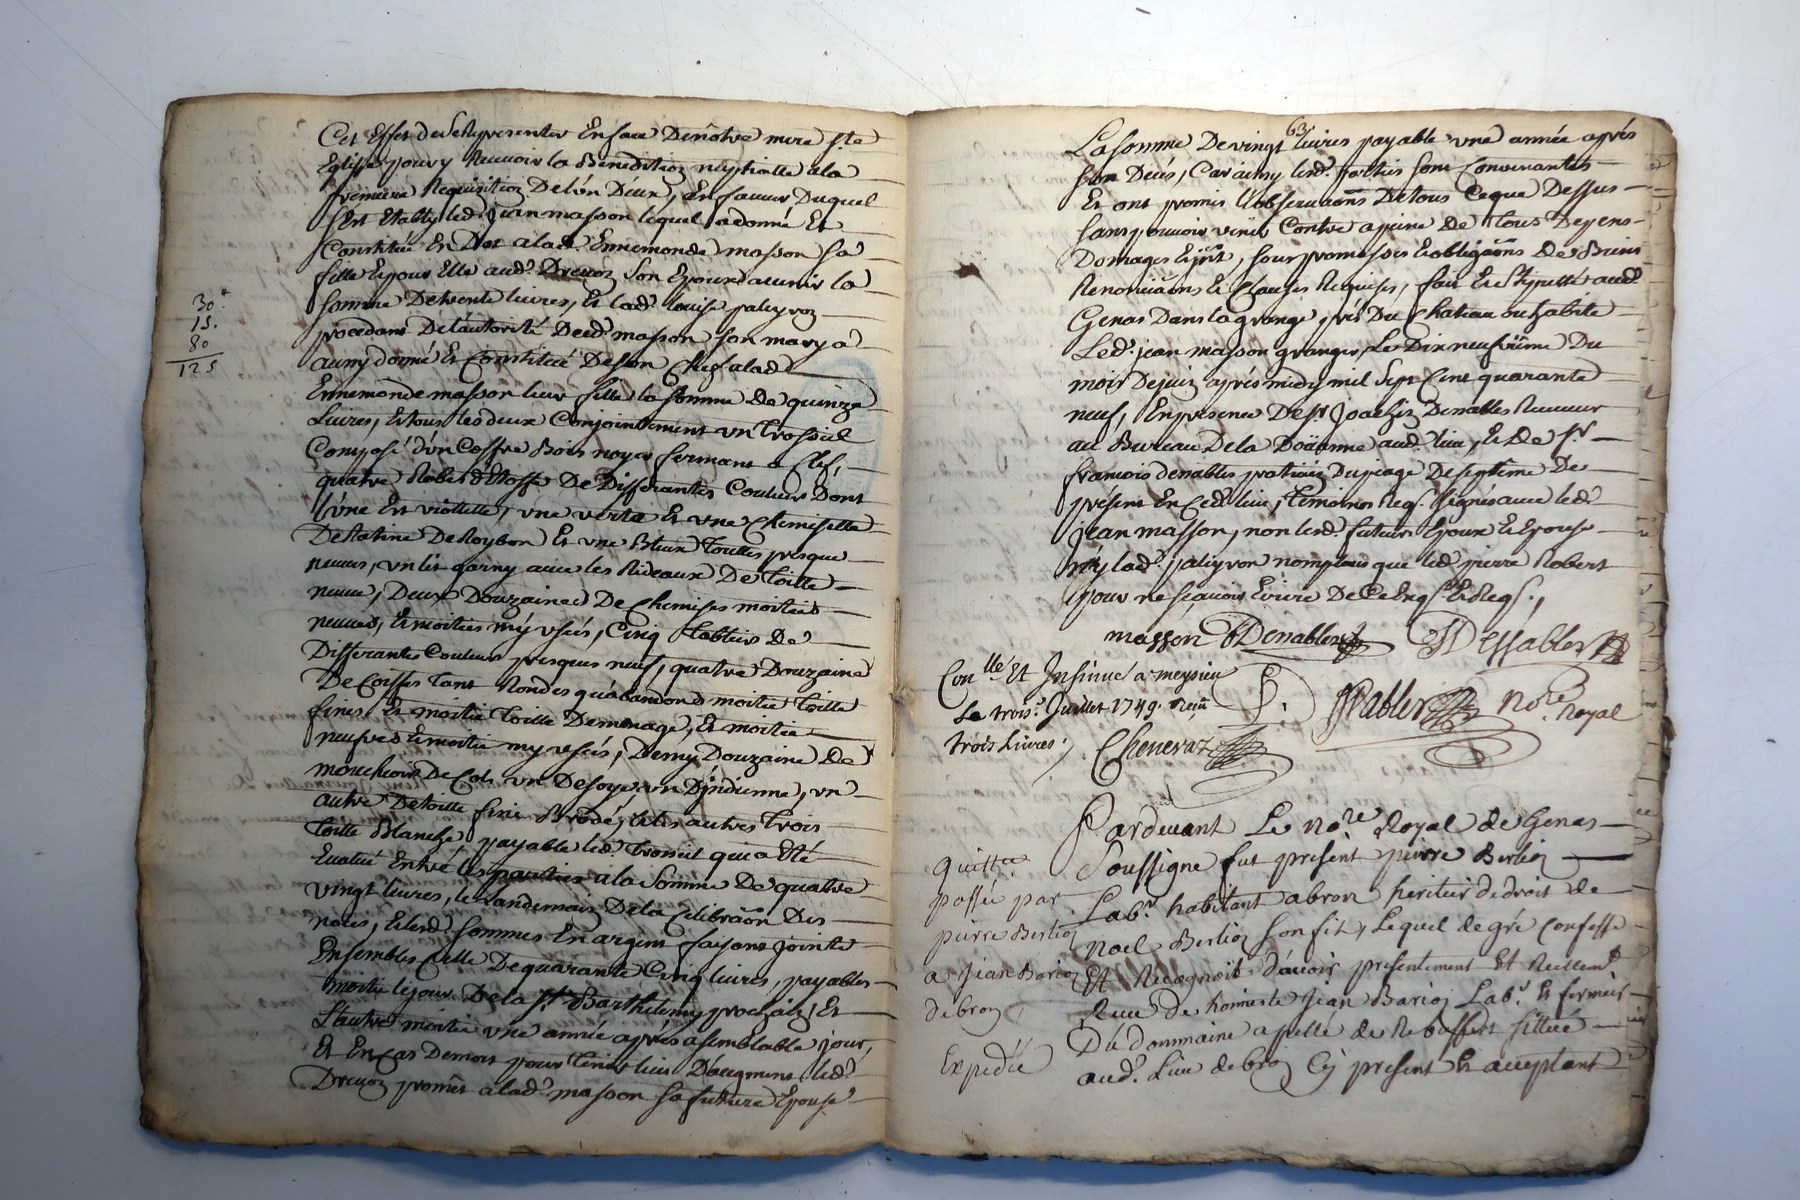 Cet Effet de se Representer En face De nôtre mere ste
Eglise pour y Recevoir la Benediction nuptialle a la
premiere Requisition De l'un Deux, En faveur Duquel
s'Est Etably led. jean masson lequel a donné Et
Constitué En Dot a lad. Ennemonde masson sa
fille Epour Elle aud. Drevon son Epoux avenir la
somme De trente livres, Et lad. louise paligvoz
procedant De l'autorité Dud. masson son mary a
aussy donné Et Constitué De son Chef a lad.
30.
15.
80
125
Ennemonde masson leur fille la somme de quinze
Livres, Et tous les deux Conjointement un trossiel
Composé d'un Coffre Bois noyer fermant a Clef,
quatre Robes d'Etoffe De Differantes Couleurs Dont
l'une Est viollette, une verte Et une Chemisette
De Ratine De Roybon Et une Bleux touttes presque
neuves, un lit garny avec les Rideaux De toille
neuve, Deux Douzaines De Chemises moitiés
neuves, Et moitiés my usés, Cinq tabliers De
Differantes Couleurs presques neuf, quatre Douzaine
De Coiffes tant Rondes qu'abandons moitié toille
fines Et moitié toille De menage, Et moitié
neufves Et moitié my usés, Demy Douzaine De
mouchoirs De Col, un De soye un D'jndienne, un
autre De toille fine Brodé, Et les autres trois
toille Blanche, payable led. trossiel qui a Eté
Evalué Entre les parties a la somme De quatre
vingt livres, le landemain De la Celibraon Des
noces, Et lesd. sommes En argent faisant jointe
Ensembles celle De quarante Cinq livres, payables
moitié le jour De la st. Barthelemy prochain, Et
l'autre moitié une année après a semblable jour,
Et En Cas De mort pour tenir lieu D'augment led.
Drevon promet a lad. masson sa future Epouse
63
La somme De vingt livres payable une année après
son Decés, Car ainsy lesd. parties sont Convenantes
Et ont promis l'observaons De tous Ceque Dessus
sans pouvoir venir Contre a peine De tous Depens
Domages Ejnt, sous promesses Et obligaons de Biens
Renonciaons Et Clauses Requises, fait Et stipullé aud.
Genas Dans la grange, prés Du Chateau ou habite
Led. jean masson granger Le Dix neufvième Du
mois De juin après midy mil sept Cent quarante
neuf, En presence De sr. Joachin Denables Receveur
au Bureau De la Doüanne aud. lieu, Et De sr.
francois denables praticien Du peage De septême De
present En Ced. lieu, temoins Reqs. signés avec led.
jean masson, non lesd. futeurs Epoux Et Epouse
ny lad. paligvon non plus que led. pierre Robert
pour ne sçavoir Ecrire De Ce Enqs. Et Reqs.,
masson Denables Dessables
Conlle. Et Insinué a meysieu
Le trois.e Juillet 1749. Reçu
trois Livres. Cheneraz
Sablier Nore. Royal
Pardevant Le nore. Royal de Genas
Soussigne fut present pierre Berlioz
Labr. habitant a bron heritier de droit de
Noel Berlioz son fils, Lequel de gré Confesse
Et Recognoit d'avoir presentement Et Reellemt.
Receu de honneste Jean Barioz Labr. Et fermier
Du dommaine apellé de Reboffert sittué
aud. Lieu de bron Cy present Et acceptant
quittce.
passée par
pierre Berlioz
a Jean Barioz
de bron
Expedíé